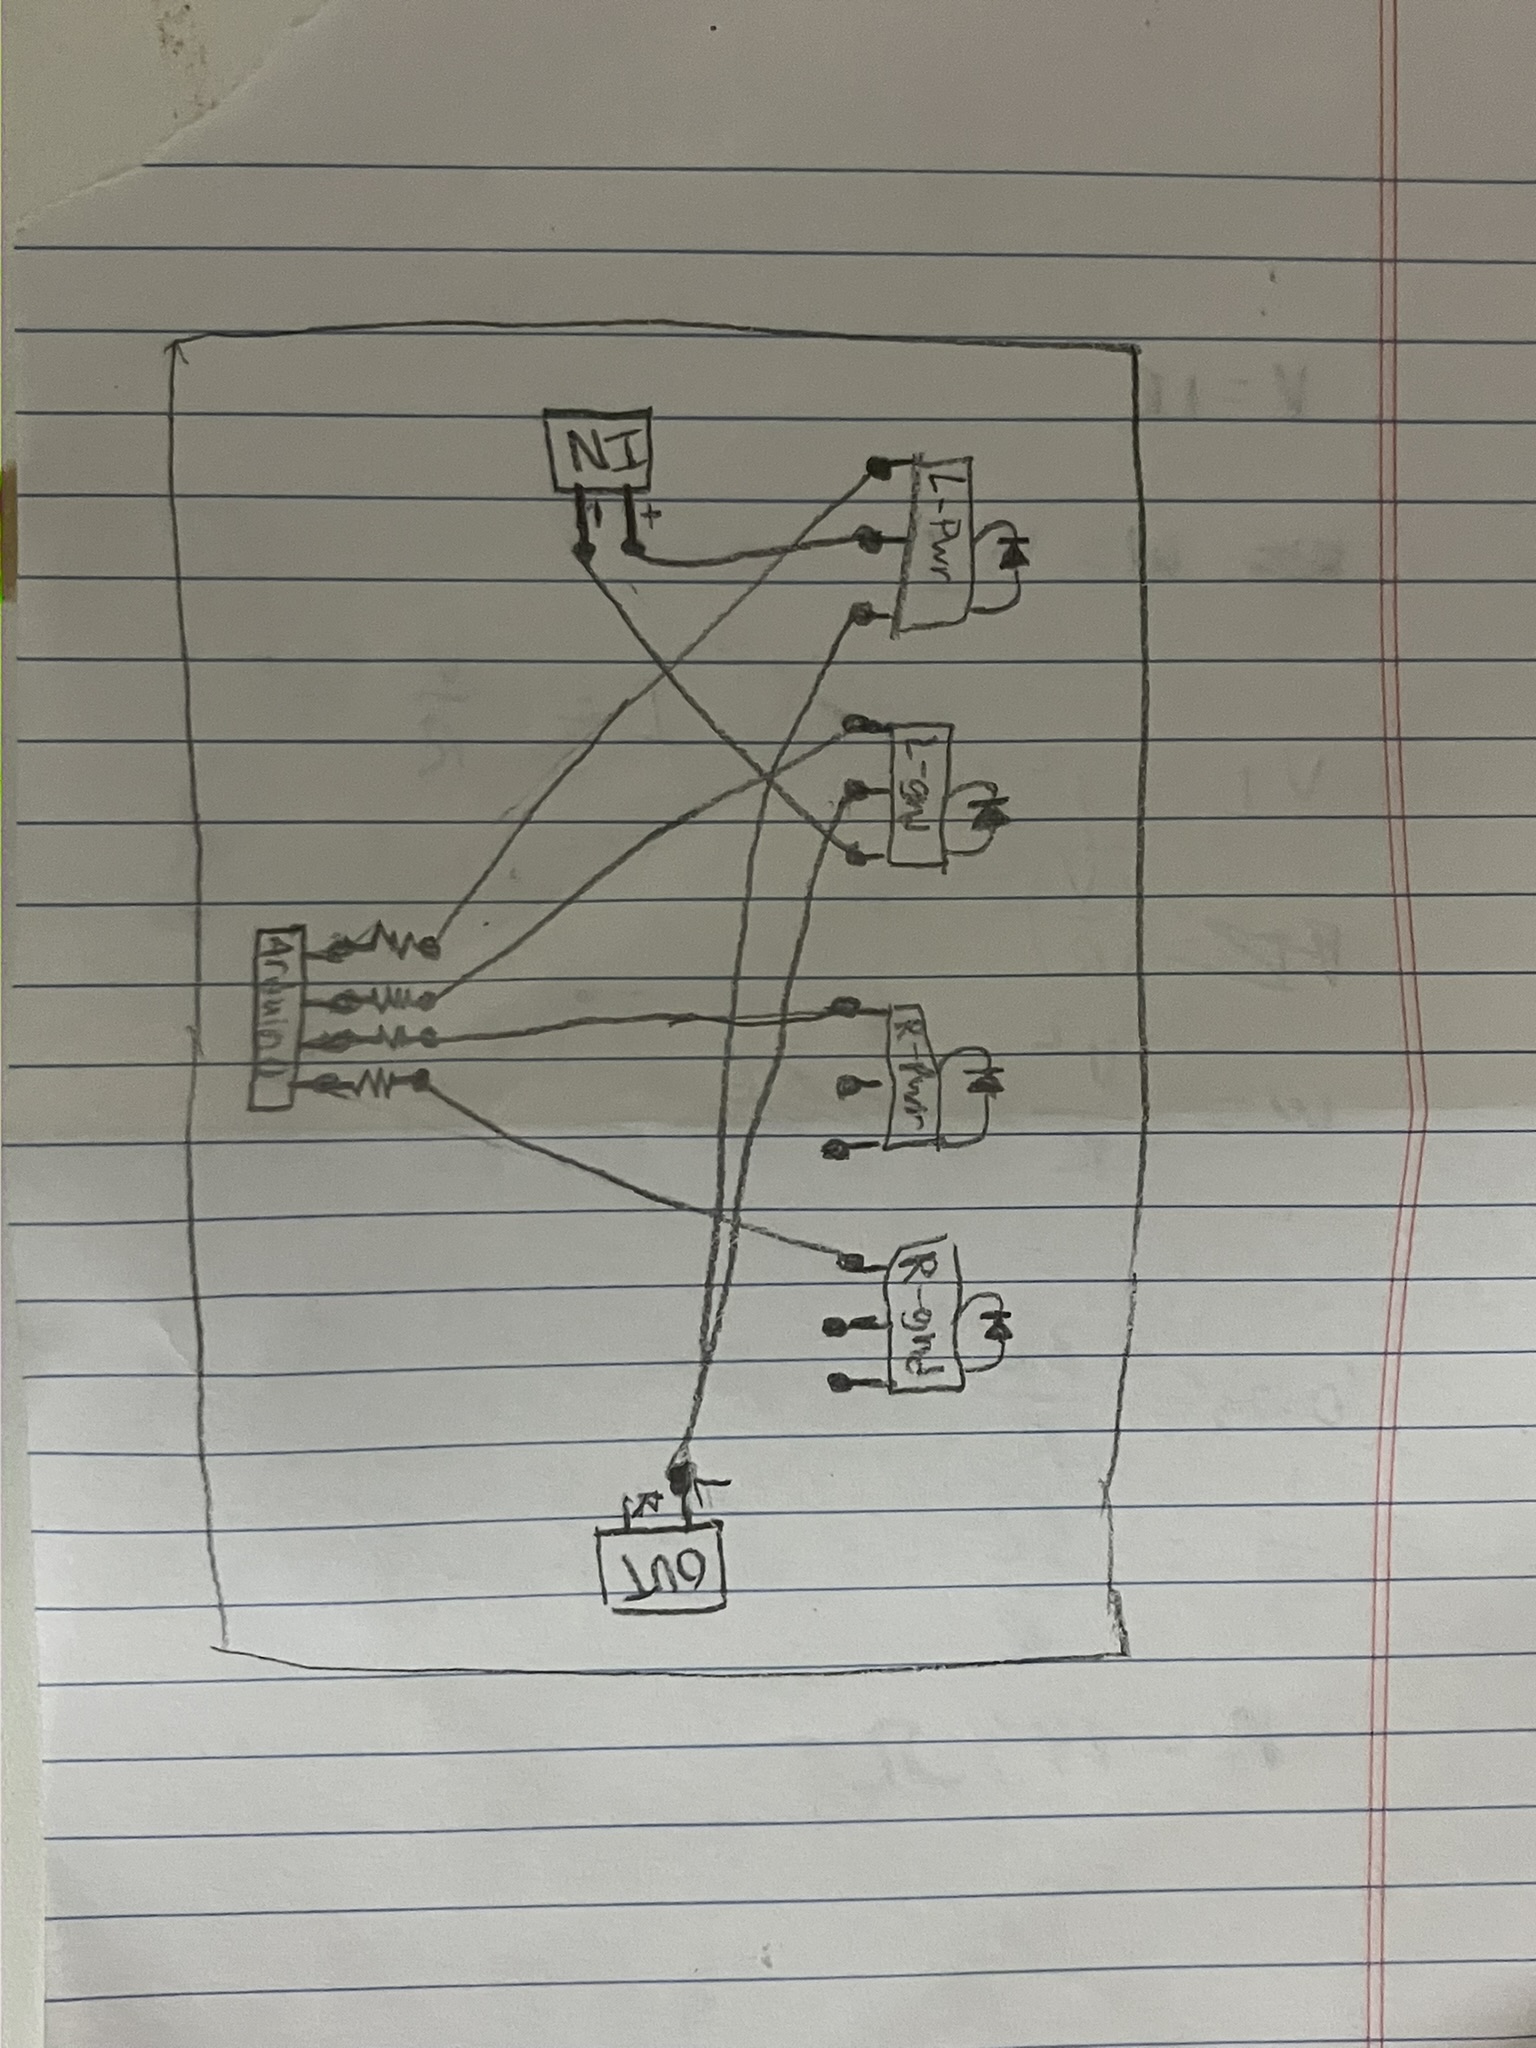 L-Pwr
L-gnd
R-Pwr
R-gnd
L
OUT
R
+
IN
-
Arduino